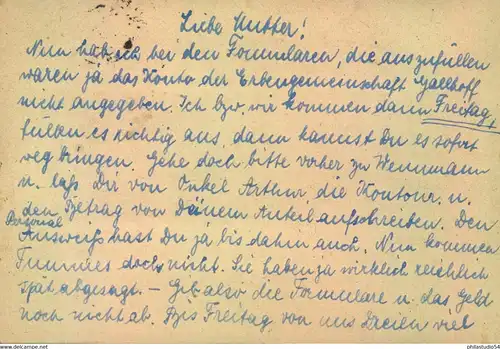 Liebe Mutter!
Nun hab ich bei den Formularen, die auszufüllen
waren ja das Konto der Erbengemeinschaft Gallhoff
nicht angegeben. Ich bzw. wir kommen dann Freitag u.
füllen es richtig aus, dann kannst Du es sofort
weg bringen. Gehe doch bitte vorher zu Wennmann
u. laß Dir von Onkel Arthur die Kontonr. u.
den Betrag von Deinem Anteil aufschreiben. Den
Personal
Ausweiß hast Du ja bis dahin auch. Nun kommen
doch nicht. Sie haben ja wirklich reichlich
spät abgesagt. — Gib also die Formulare u. das Geld
noch nicht ab. Bis Freitag von uns Dreien viel
philastudio54